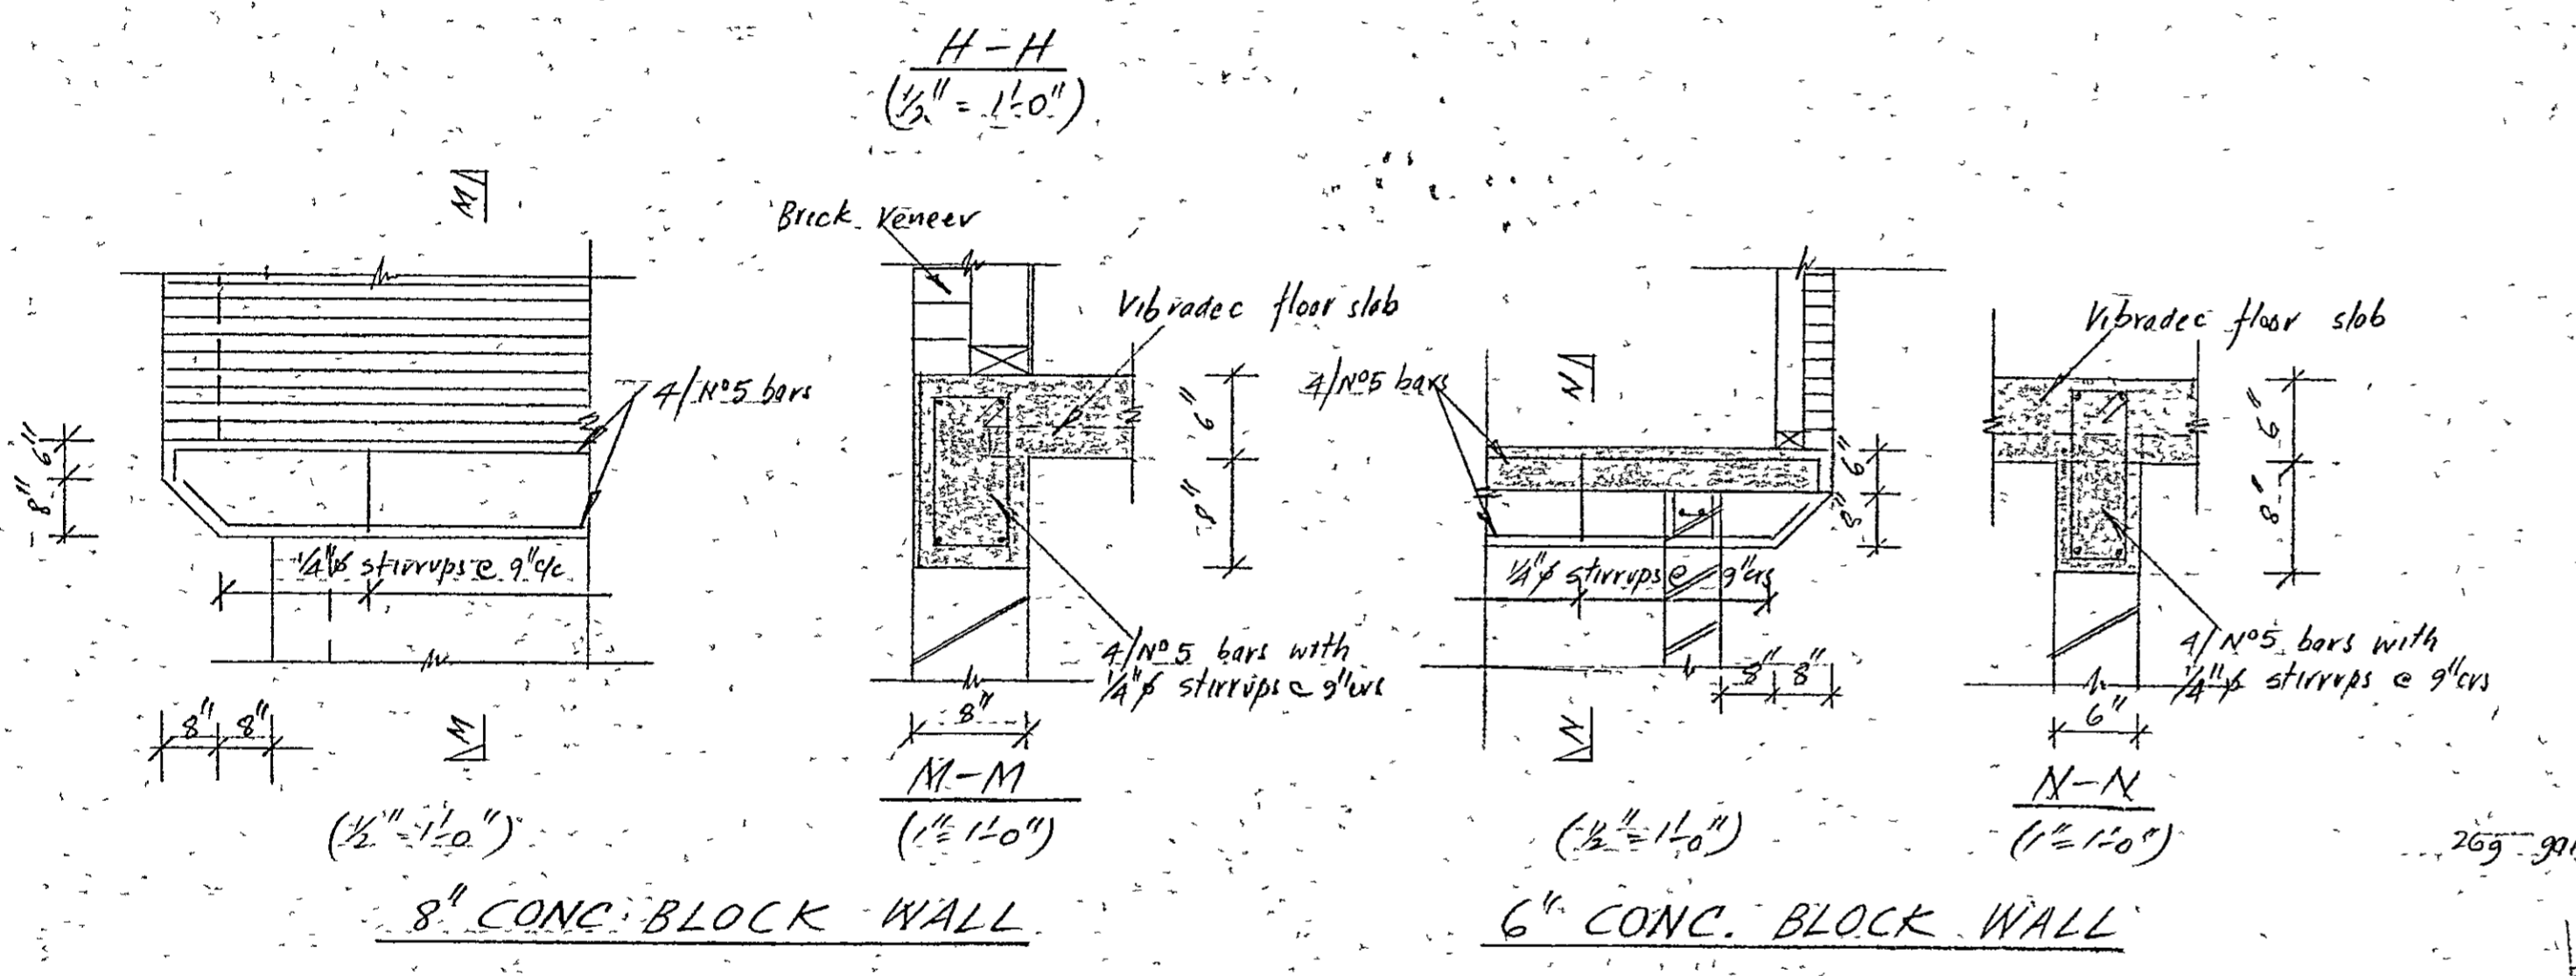 H-H
(1/2" = 1'-0")
M
Brick Veneer
Vibradec floor slab
4/Nº5 bars
6"
8"
1/4"ø stirrups @ 9"c/c
6"
8"
4/Nº5 bars with
1/4"ø stirrups @ 9"crs
8" 8"
M
8"
M-M
(1/2" = 1'-0")
(1" = 1'-0")
8" CONC. BLOCK WALL
N
Vibradec floor slab
4/Nº5 bars
6"
8"
1/4"ø stirrups @ 9"crs
6"
8"
4/Nº5 bars with
1/4"ø stirrups @ 9"crs
8" 8"
N
6"
N-N
(1/2" = 1'-0")
(1" = 1'-0")
6" CONC. BLOCK WALL